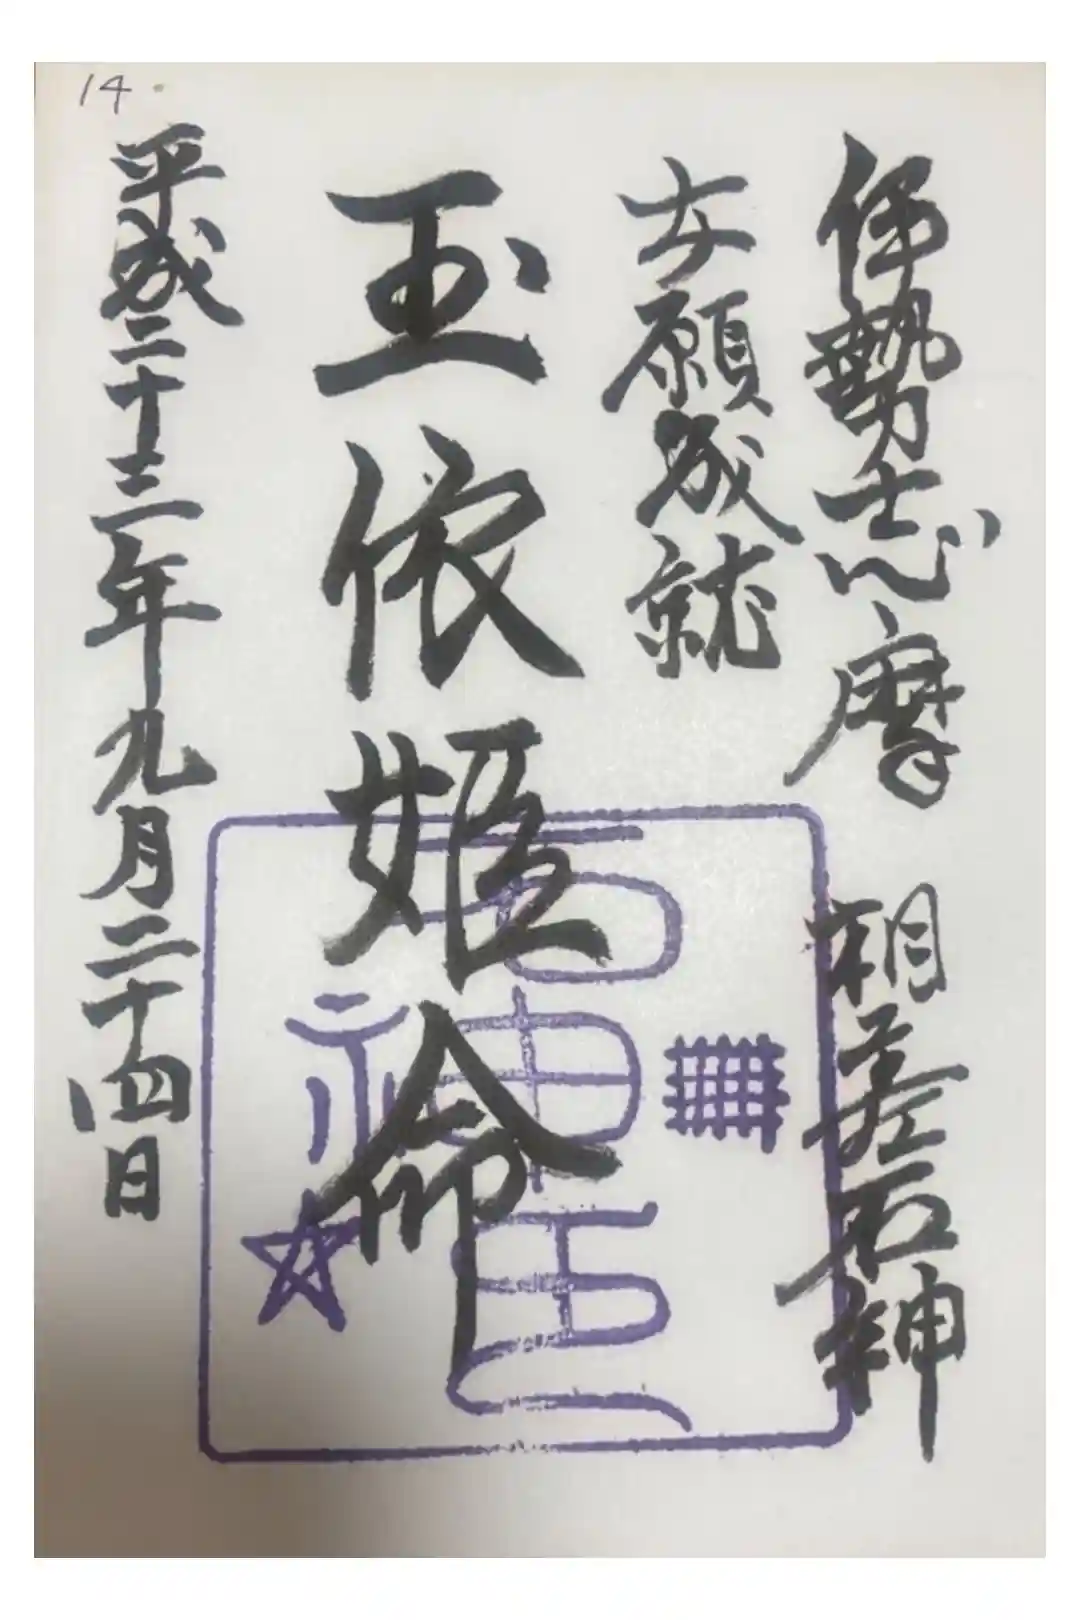 伊勢志摩 相差石神
女願成就
玉依姫命
平成二十三年九月二十四日
14.
石神